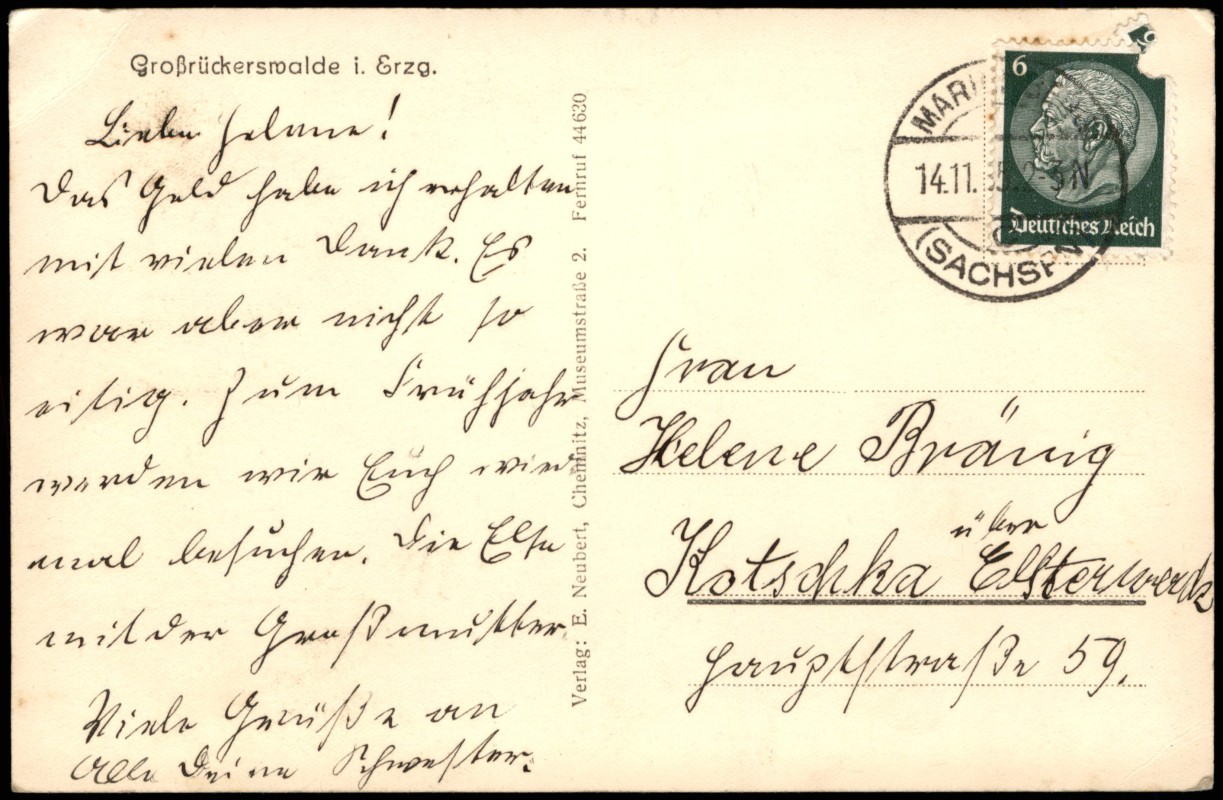 Großrückerswalde i. Erzg.
Liebe Helene!
Das Geld habe ich erhalten
mit vielen Dank. Es
war aber nicht so
eilig. Zum Frühjahr
werden wir Euch wied
mal besuchen. Die Else
mit der Großmutter.
Viele Grüße an
Alle Deine Schwester.
Verlag: E. Neubert, Chemnitz, Museumstraße 2. Fernruf 44630
6
Deutsches Reich
14.11. 2-3N
(SACHSEN)
Frau
Helene Bränig
Kotschka über Elsterwerda
Hauptstraße 59.